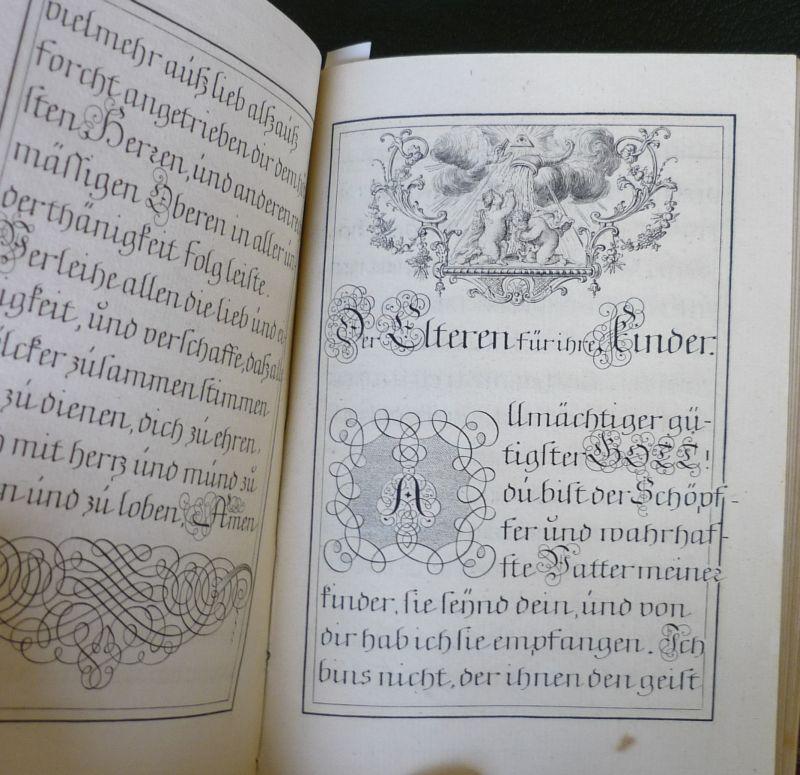 vielmehr auß lieb alß auß
forcht angetrieben dir dem
sten Herzen, und anderen
mässigen Oberen in aller
derthänigkeit folg leiste.
Verleihe allen die lieb und
igkeit, und verschaffe, daß
ölcker zusammen stimmen
zu dienen, dich zu ehren,
mit hertz und mund zu
n und zu loben. Amen
Der Elteren für ihre Kinder.
Allmächtiger gü-
tigster GOTT!
du bist der Schöpf-
fer und wahrhaf-
fte Vatter meiner
kinder, sie seÿnd dein, und von
dir hab ich sie empfangen. Ich
bins nicht, der ihnen den geist